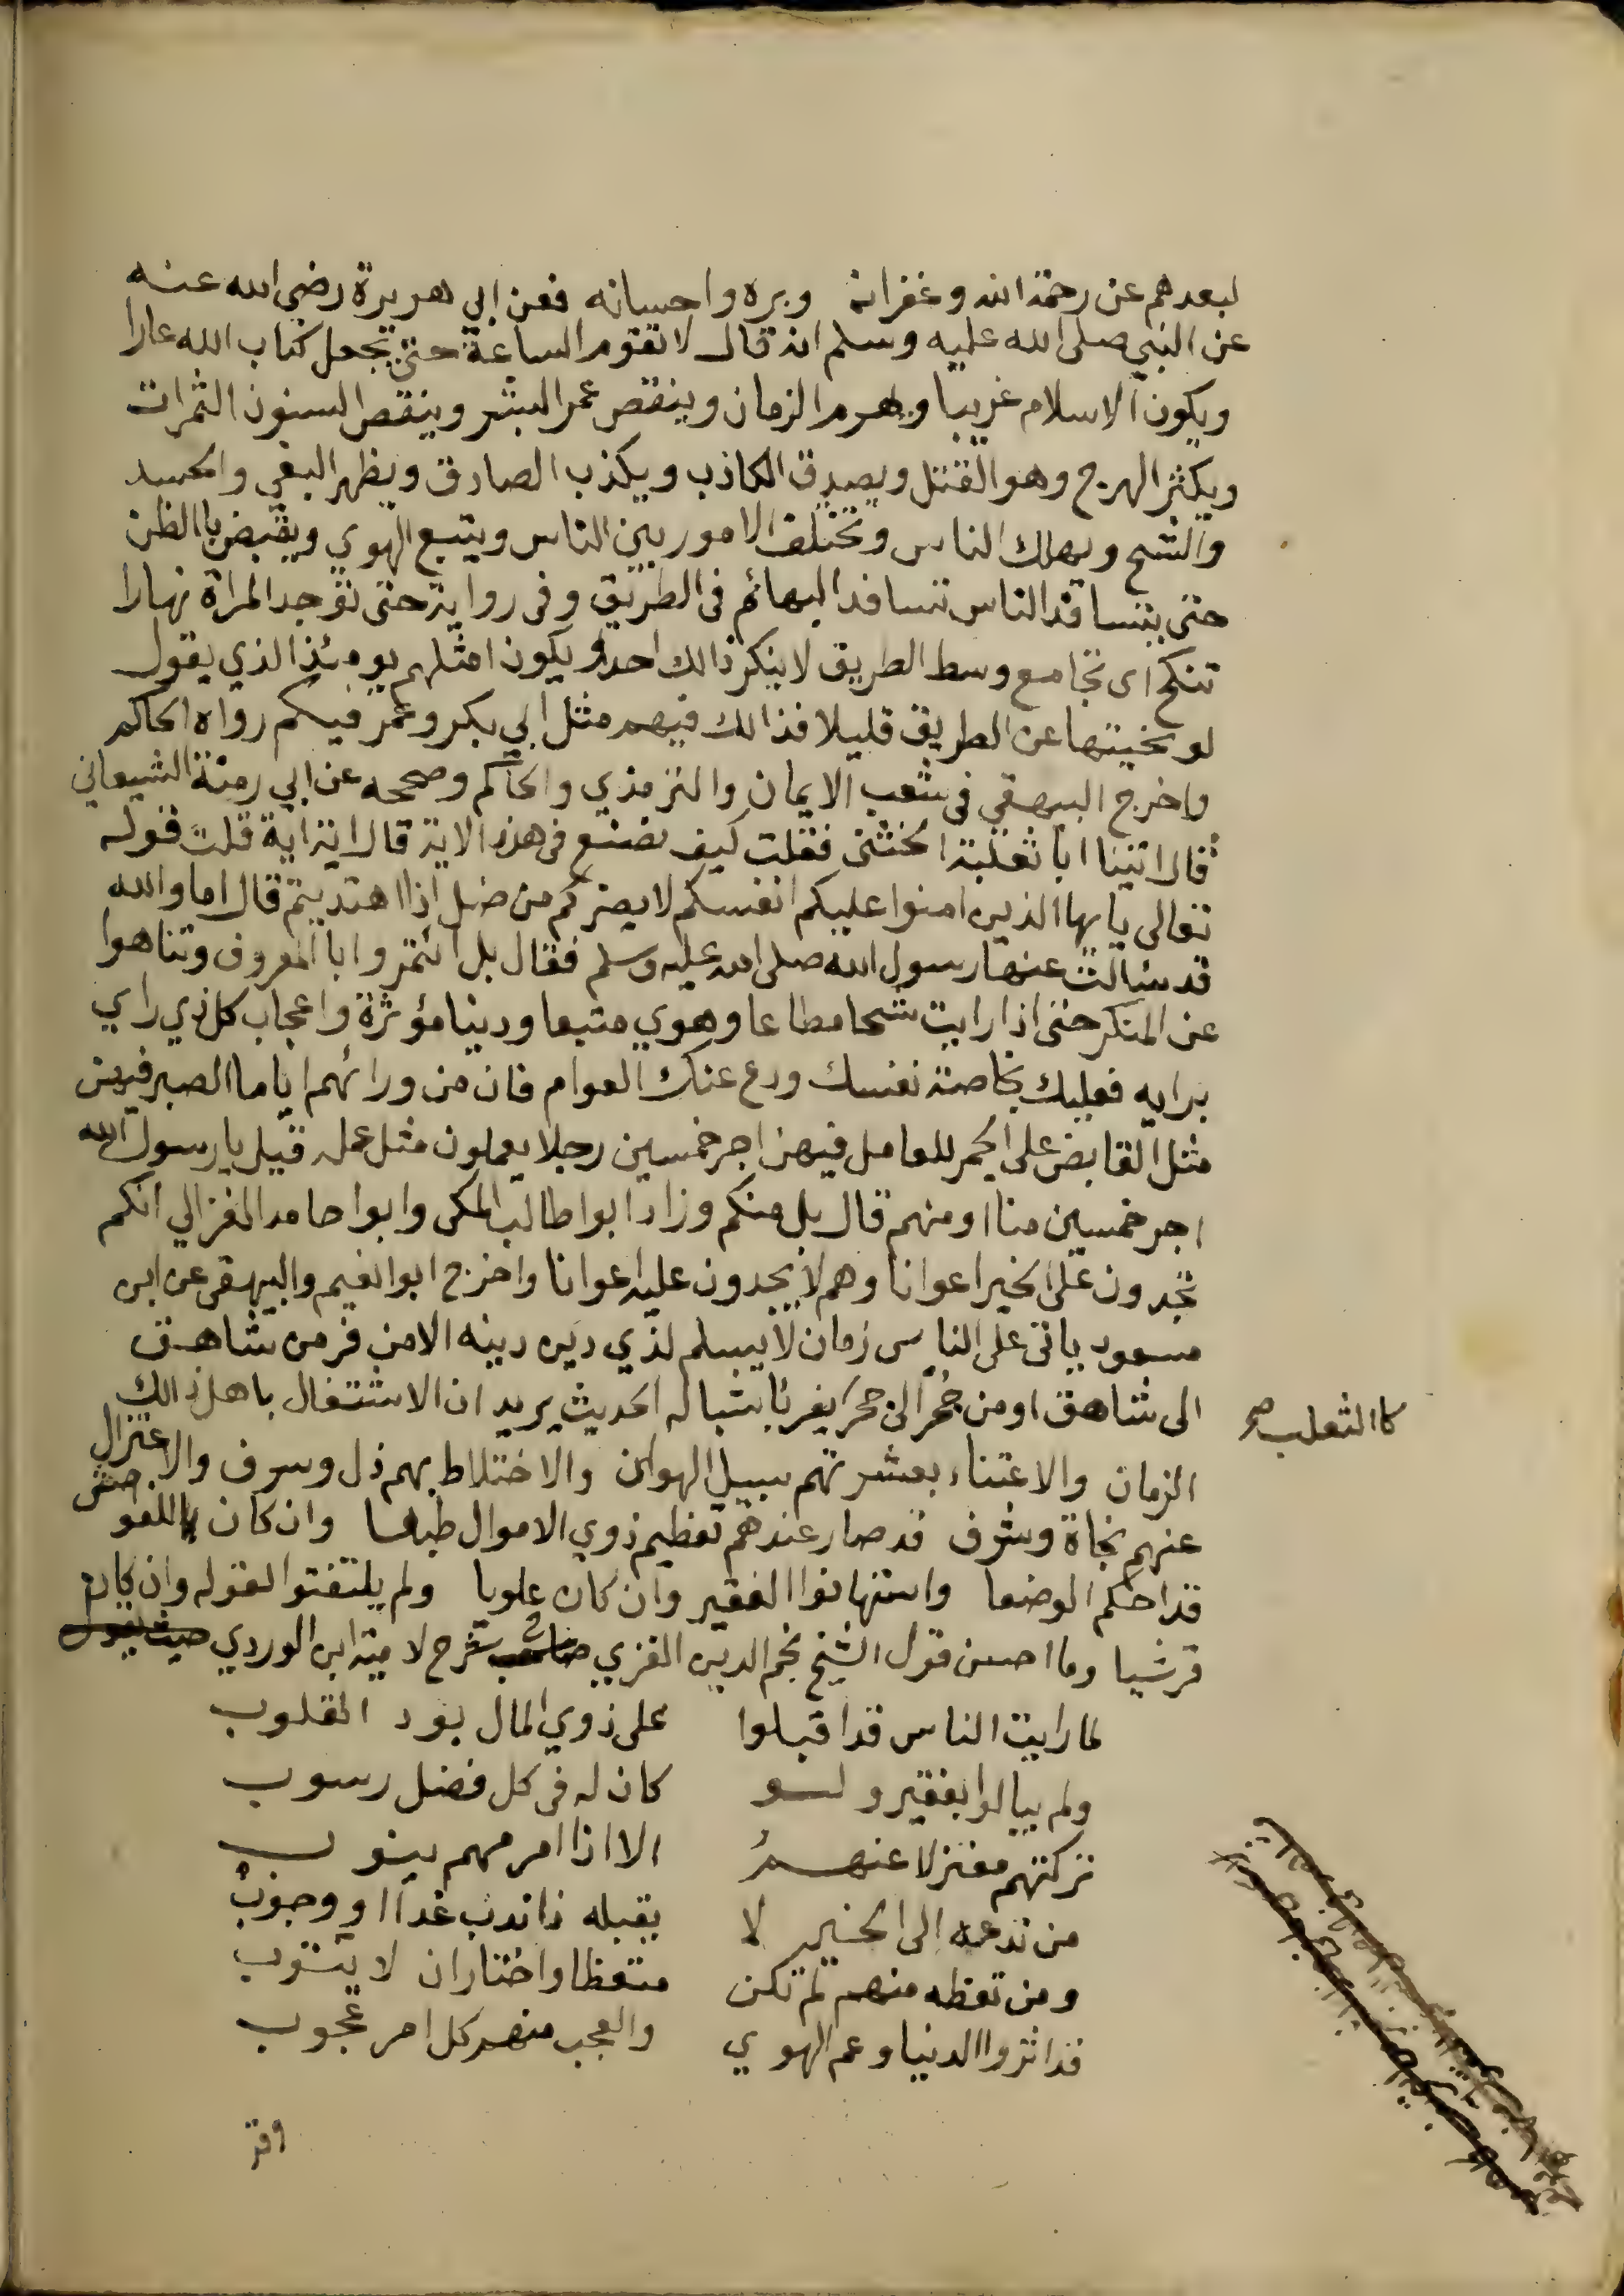 لبعدهم عن رحمة الله وغفرانه وبره واحسانه فعن ابي هريرة رضي الله عنه
عن النبي صلى الله عليه وسلم انه قال لا تقوم الساعة حتى تجعل كتاب الله عارا
ويكون الاسلام غريبا ويهرم الزمان وينقص عمر البشر وينقص السنون الثمرات
ويكثر الهرج وهو القتل ويصدق الكاذب ويكذب الصادق ويظهر البغي والحسد
والشح ويهلك الناس وتختلف الامور بين الناس ويتبع الهوي ويقبض باالظن
حتى يتسافد الناس تسافد البهائم فى الطريق وفى رواية حتى توجد المراة نهارا
تنكح اى تجامع وسط الطريق لا ينكر ذالك احد ويكون امثلهم يومئذ الذي يقول
لو نحيتها عن الطريق قليلا فذالك فيهم مثل ابي بكر وعمر فيكم رواه الحاكم
واخرج البيهقي فى شعب الايمان والترمذي والحاكم وصححه عن ابي رمثة الشيعاني
قال اتينا ابا ثعلبة الخشنى فقلت كيف تصنع فى هذه الاية قال اية اية قلت قوله
تعالى يايها الذين امنوا عليكم انفسكم لا يضركم من ضل اذا اهتديتم قال اما والله
قد سئالت عنها رسول الله صلى الله عليه وسلم فقال بل ائتمروا باالمعروف وتناهوا
عن المنكر حتى اذا رايت شحا مطاعا وهوي متبعا ودينا مؤثرة واعجاب كل ذي راي
برايه فعليك بخاصة نفسك ودع عنك العوام فان من ورائهم اياما الصبر فيهن
مثل القابض على الجمر للعامل فيهن اجر خمسين رجلا يعملون مثل عمله قيل يا رسول الله
اجر خمسين منا او منهم قال بل منكم وزاد ابوا طالب المكى وابوا حامد الغزالي انكم
تجدون على الخير اعوانا وهم لا يجدون عليه اعوانا واخرج ابوا نعيم والبيهقى عن ابن
مسعود ياتى على الناس زمان لا يسلم لذي دين دينه الا من فر من شاهق
الى شاهق او من جحر الى جحر يفر باشباله الحديث يريد ان الاشتغال باهل ذالك
كاالثعلب صح
الزمان والاعتناء بعشرتهم سبيل الهوان والاختلاط بهم ذل وسرف والاعتزال
عنهم نجاة وشرف قد صار عندهم تعظيم ذوي الاموال طبعا وان كان اللغو
قد احكم الوضعا واستهانوا الفقير وان كان علويا ولم يلتفتوا لقوله وان كان
قرشيا وما احسن قول الشيخ نجم الدين الغزي شرح لامية ابن الوردي حيث يقول
لما رايت الناس قد اقبلوا على ذوي المال بود القلوب
ولم يبالوا بفقير ولو كان له فى كل فضل رسوب
تركتهم معتزلا عنهم الا اذا امر مهم ينوب
من تدعه الى الخير لا يقبله ذا ندب غدا او وجوب
ومن تعظه منهم لم تكن متعظا واختار ان لا يتوب
قد اثروا الدنيا وعم الهوي والعجب منهم كل امر عجوب